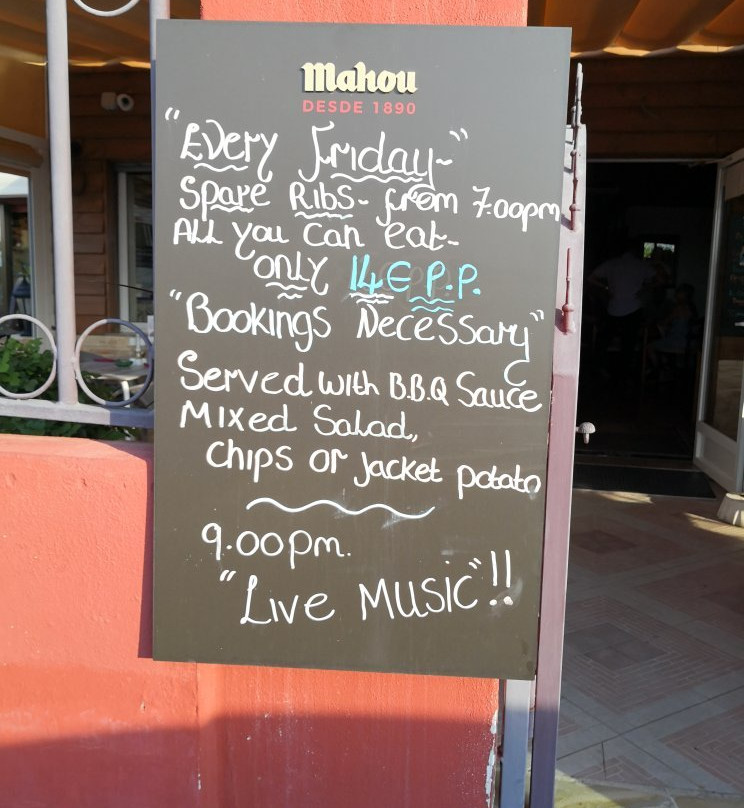 Mahou
DESDE 1890
"Every Friday~"
Spare Ribs- from 7.00pm
All you can eat-
only 14€ P.P.
"Bookings Necessary"
Served with B.B.Q Sauce
Mixed Salad,
chips or jacket potato
9.00pm.
"Live Music"!!